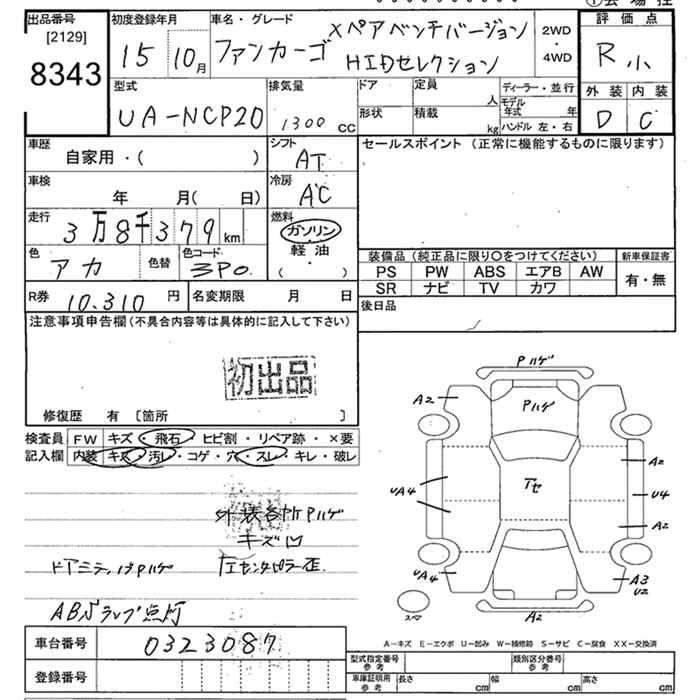 出品番号
[2129]
8343
初度登録年月
15 10月
車名・グレード
ファンカーゴ
Xペアベンチバージョン
HIDセレクション
2WD
・
4WD
評価点
R小
外装 内装
D C
型式
UA-NCP20
排気量
1300 cc
ドア
形状
定員 人
積載 kg
ディーラー・並行
モデル年式 年
ハンドル 左・右
車歴
自家用・( )
シフト
AT
車検
年 月( 日)
冷房
AC
走行
3万8千379km
燃料
ガソリン
・
軽油
( ・ )
色
アカ
色替
色コード
3P0
R券 10,310 円
名変期限 月 日
セールスポイント (正常に機能するものに限ります)
装備品 (純正品に限り○をつけてください)
新車保証書
PS PW ABS エアB AW
SR ナビ TV カワ
有・無
後日品
注意事項申告欄(不具合内容等は具体的に記入して下さい)
初出品
修復歴 有 〔箇所 〕
検査員記入欄
FW キズ・飛石・ヒビ割・リペア跡・×要
内装 キズ・汚レ・コゲ・穴・スレ・キレ・破レ
外装各所Pハゲ
キズ凹
ABSランプ点灯
Pハゲ
Pハゲ
A2
A2
UA4
U4
A2
UA4
A3
U2
A2
スペア
A-キズ E-エクボ U-凹み W-補修跡 S-サビ C-腐食 XX-交換済
車台番号 0323087
登録番号
型式指定番号
参考
類別区分番号
参考
車庫証明用
参考
長さ cm
幅 cm
高さ cm